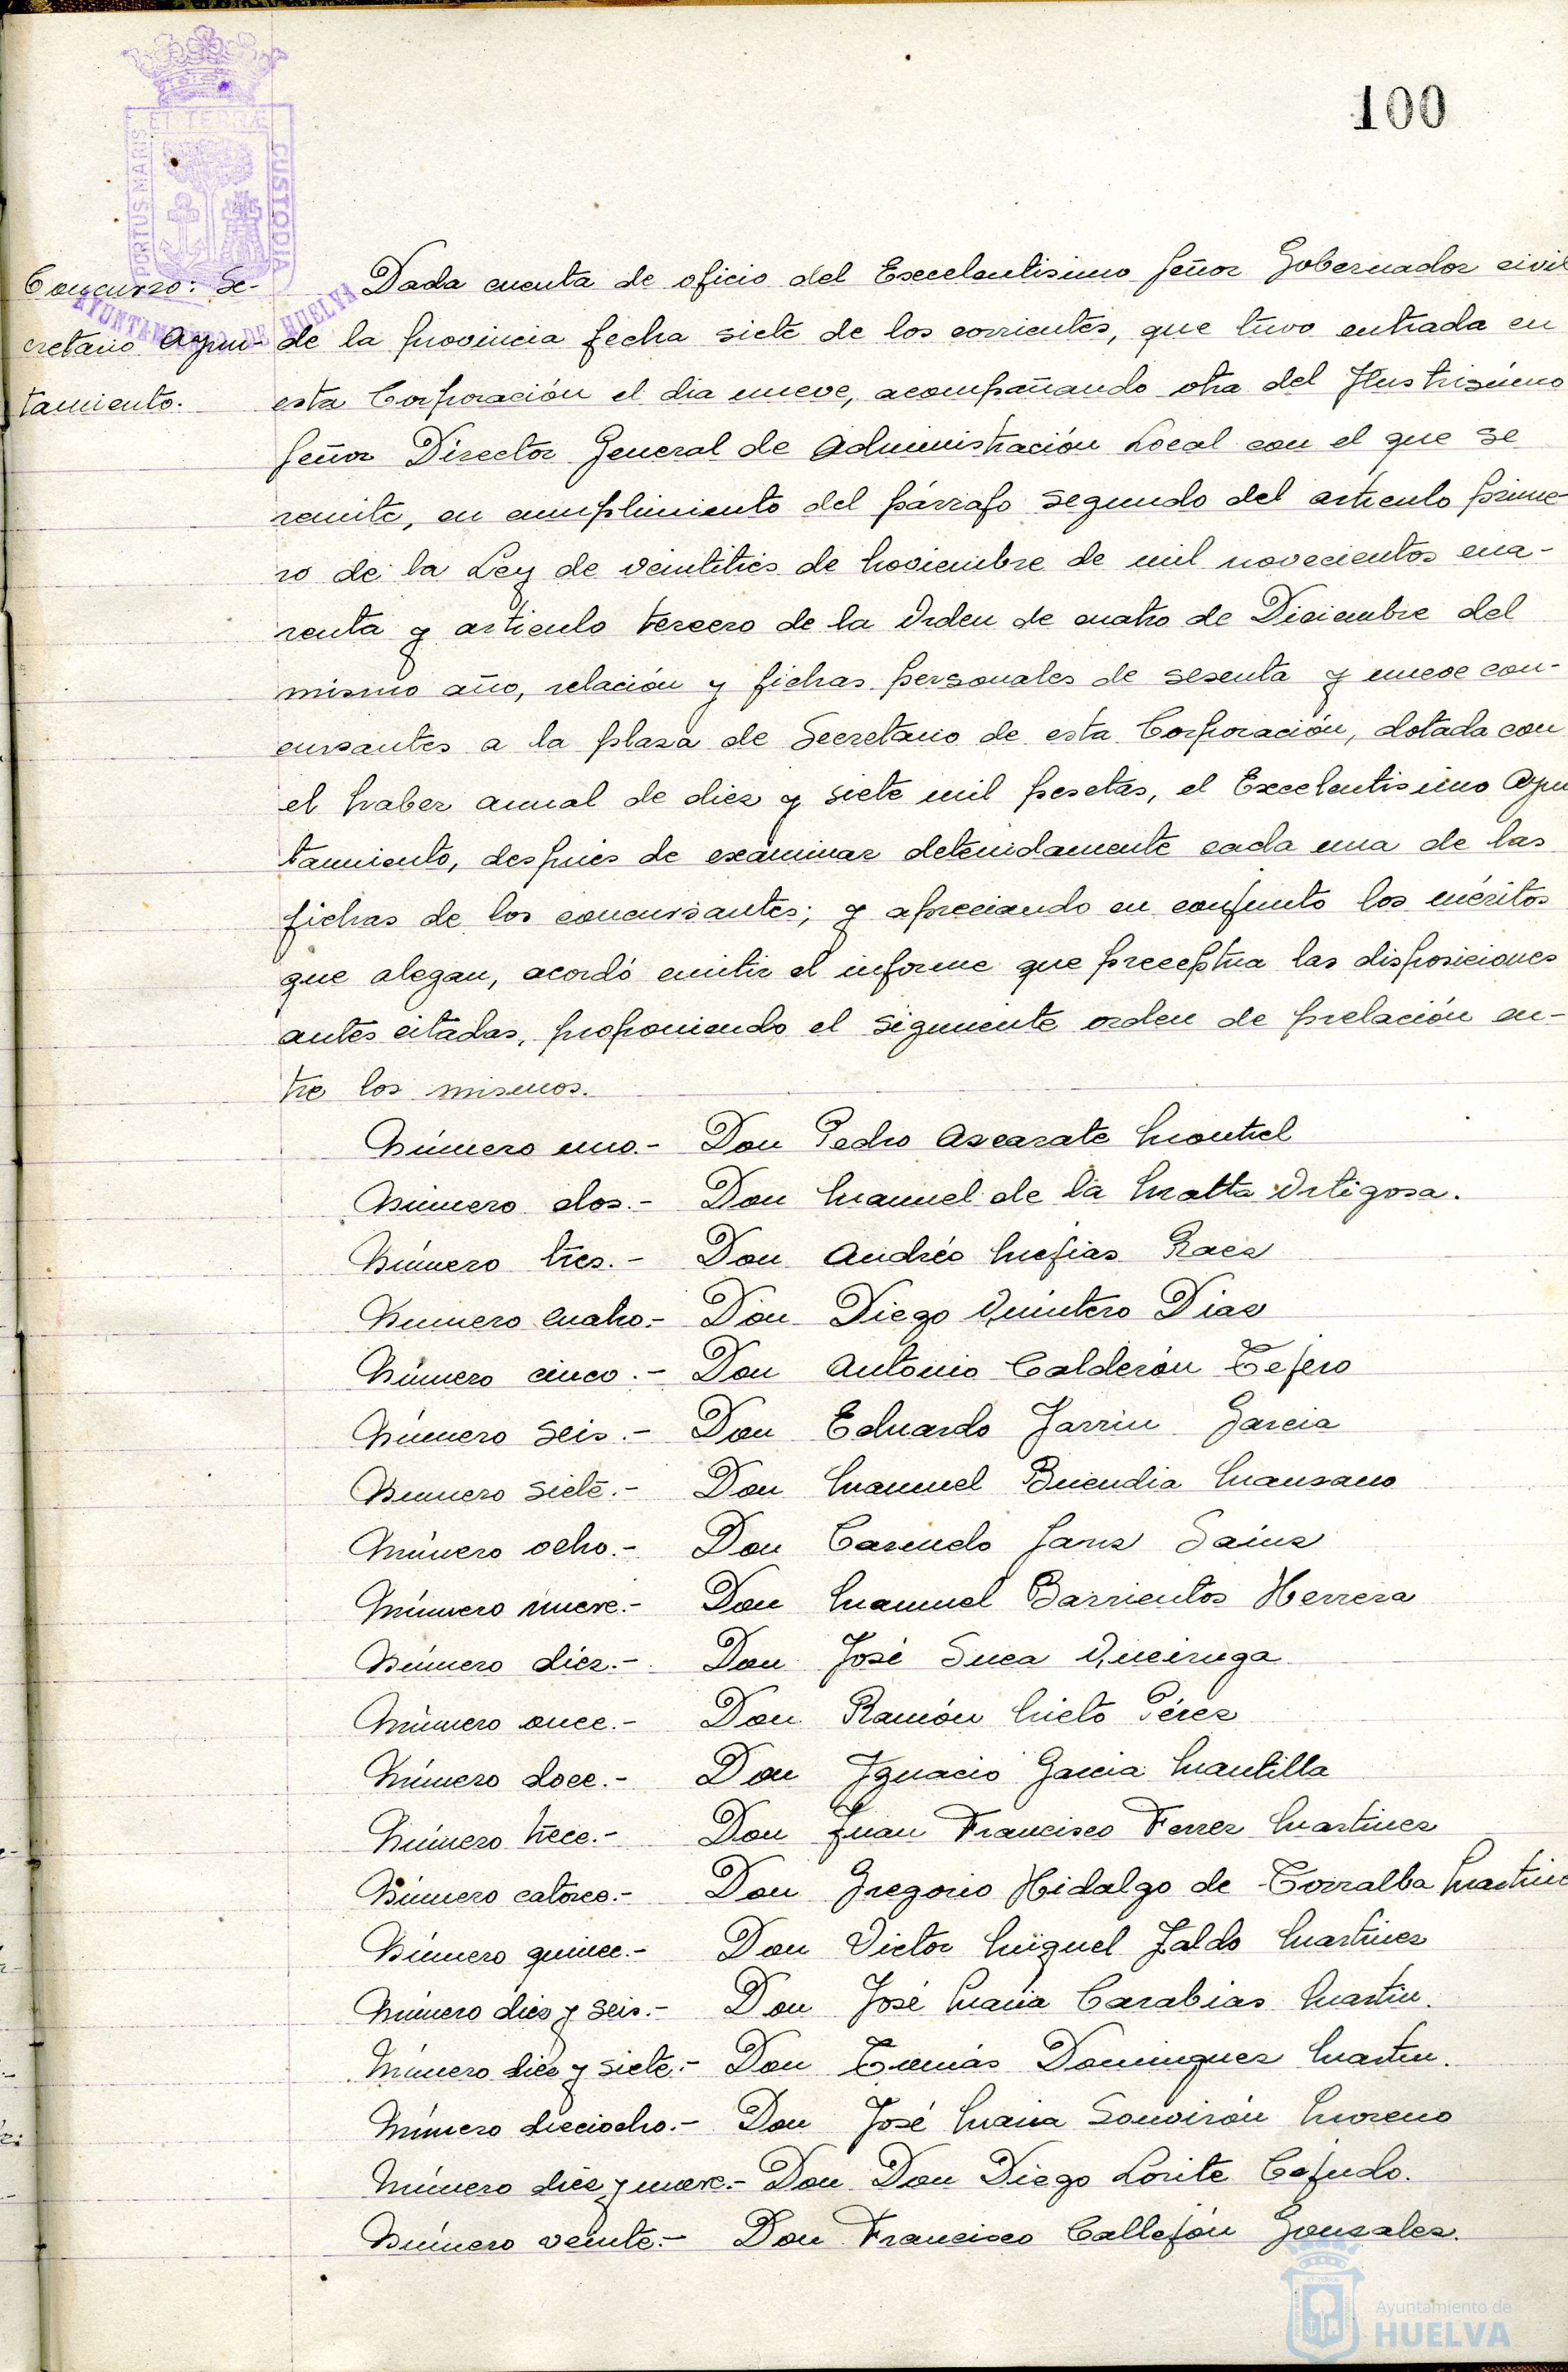 100
PORTUS MARIS
ET TERRÆ
CUSTODIA
AYUNTAMIENTO DE HUELVA
Concurso: Se-
cretario Ayun-
tamiento.
Dada cuenta de oficio del Excelentisimo Señor Gobernador civil
de la provincia fecha siete de los corrientes, que tuvo entrada en
esta Corporación el dia nueve, acompañando otra del Ilustrisimo
Señor Director General de Administración Local con el que se
remite, en cumplimiento del párrafo segundo del articulo prime-
ro de la Ley de veintitrés de Noviembre de mil novecientos cua-
renta y articulo tercero de la Orden de cuatro de Diciembre del
mismo año, relación y fichas personales de sesenta y nueve con-
cursantes a la plaza de Secretario de esta Corporación, dotada con
el haber anual de diez y siete mil pesetas, el Excelentisimo Ayun
tamiento, después de examinar detenidamente cada una de las
fichas de los concursantes; y apreciando en conjunto los méritos
que alegan, acordó emitir el informe que preceptua las disposiciones
antes citadas, proponiendo el siguiente orden de prelación en-
tre los mismos.
Número uno.- Don Pedro Azcarate Montiel
Número dos.- Don Manuel de la Matta Ortigosa.
Número tres.- Don Andrés Mejias Raez
Numero cuatro.- Don Diego Quintero Diaz
Número cinco.- Don Antonio Calderón Tejero
Número seis.- Don Eduardo Jarrin Garcia
Numero siete.- Don Manuel Buendia Manzano
Número ocho.- Don Sainz
Número nueve.- Don Manuel Barrientos Herrera
Número diez.- Don José Queiruga
Número once.- Don Ramón Nieto Pérez
Número doce.- Don Ignacio Garcia Mantilla
Número trece.- Don Juan Francisco Ferrer Martinez
Número catorce.- Don Gregorio Hidalgo de Torralba
Número quince.- Don Victor Miguel Jaldo Martinez
Número diez y seis.- Don José Maria Carabias Martin.
Número diez y siete.- Don Tomás Dominguez Martin.
Número dieciocho.- Don José Maria Souvirón Moreno
Número diez y nueve.- Don Don Diego Lorite Cejudo.
Número veinte.- Don Francisco Callejón Gonzalez.
Ayuntamiento de
HUELVA